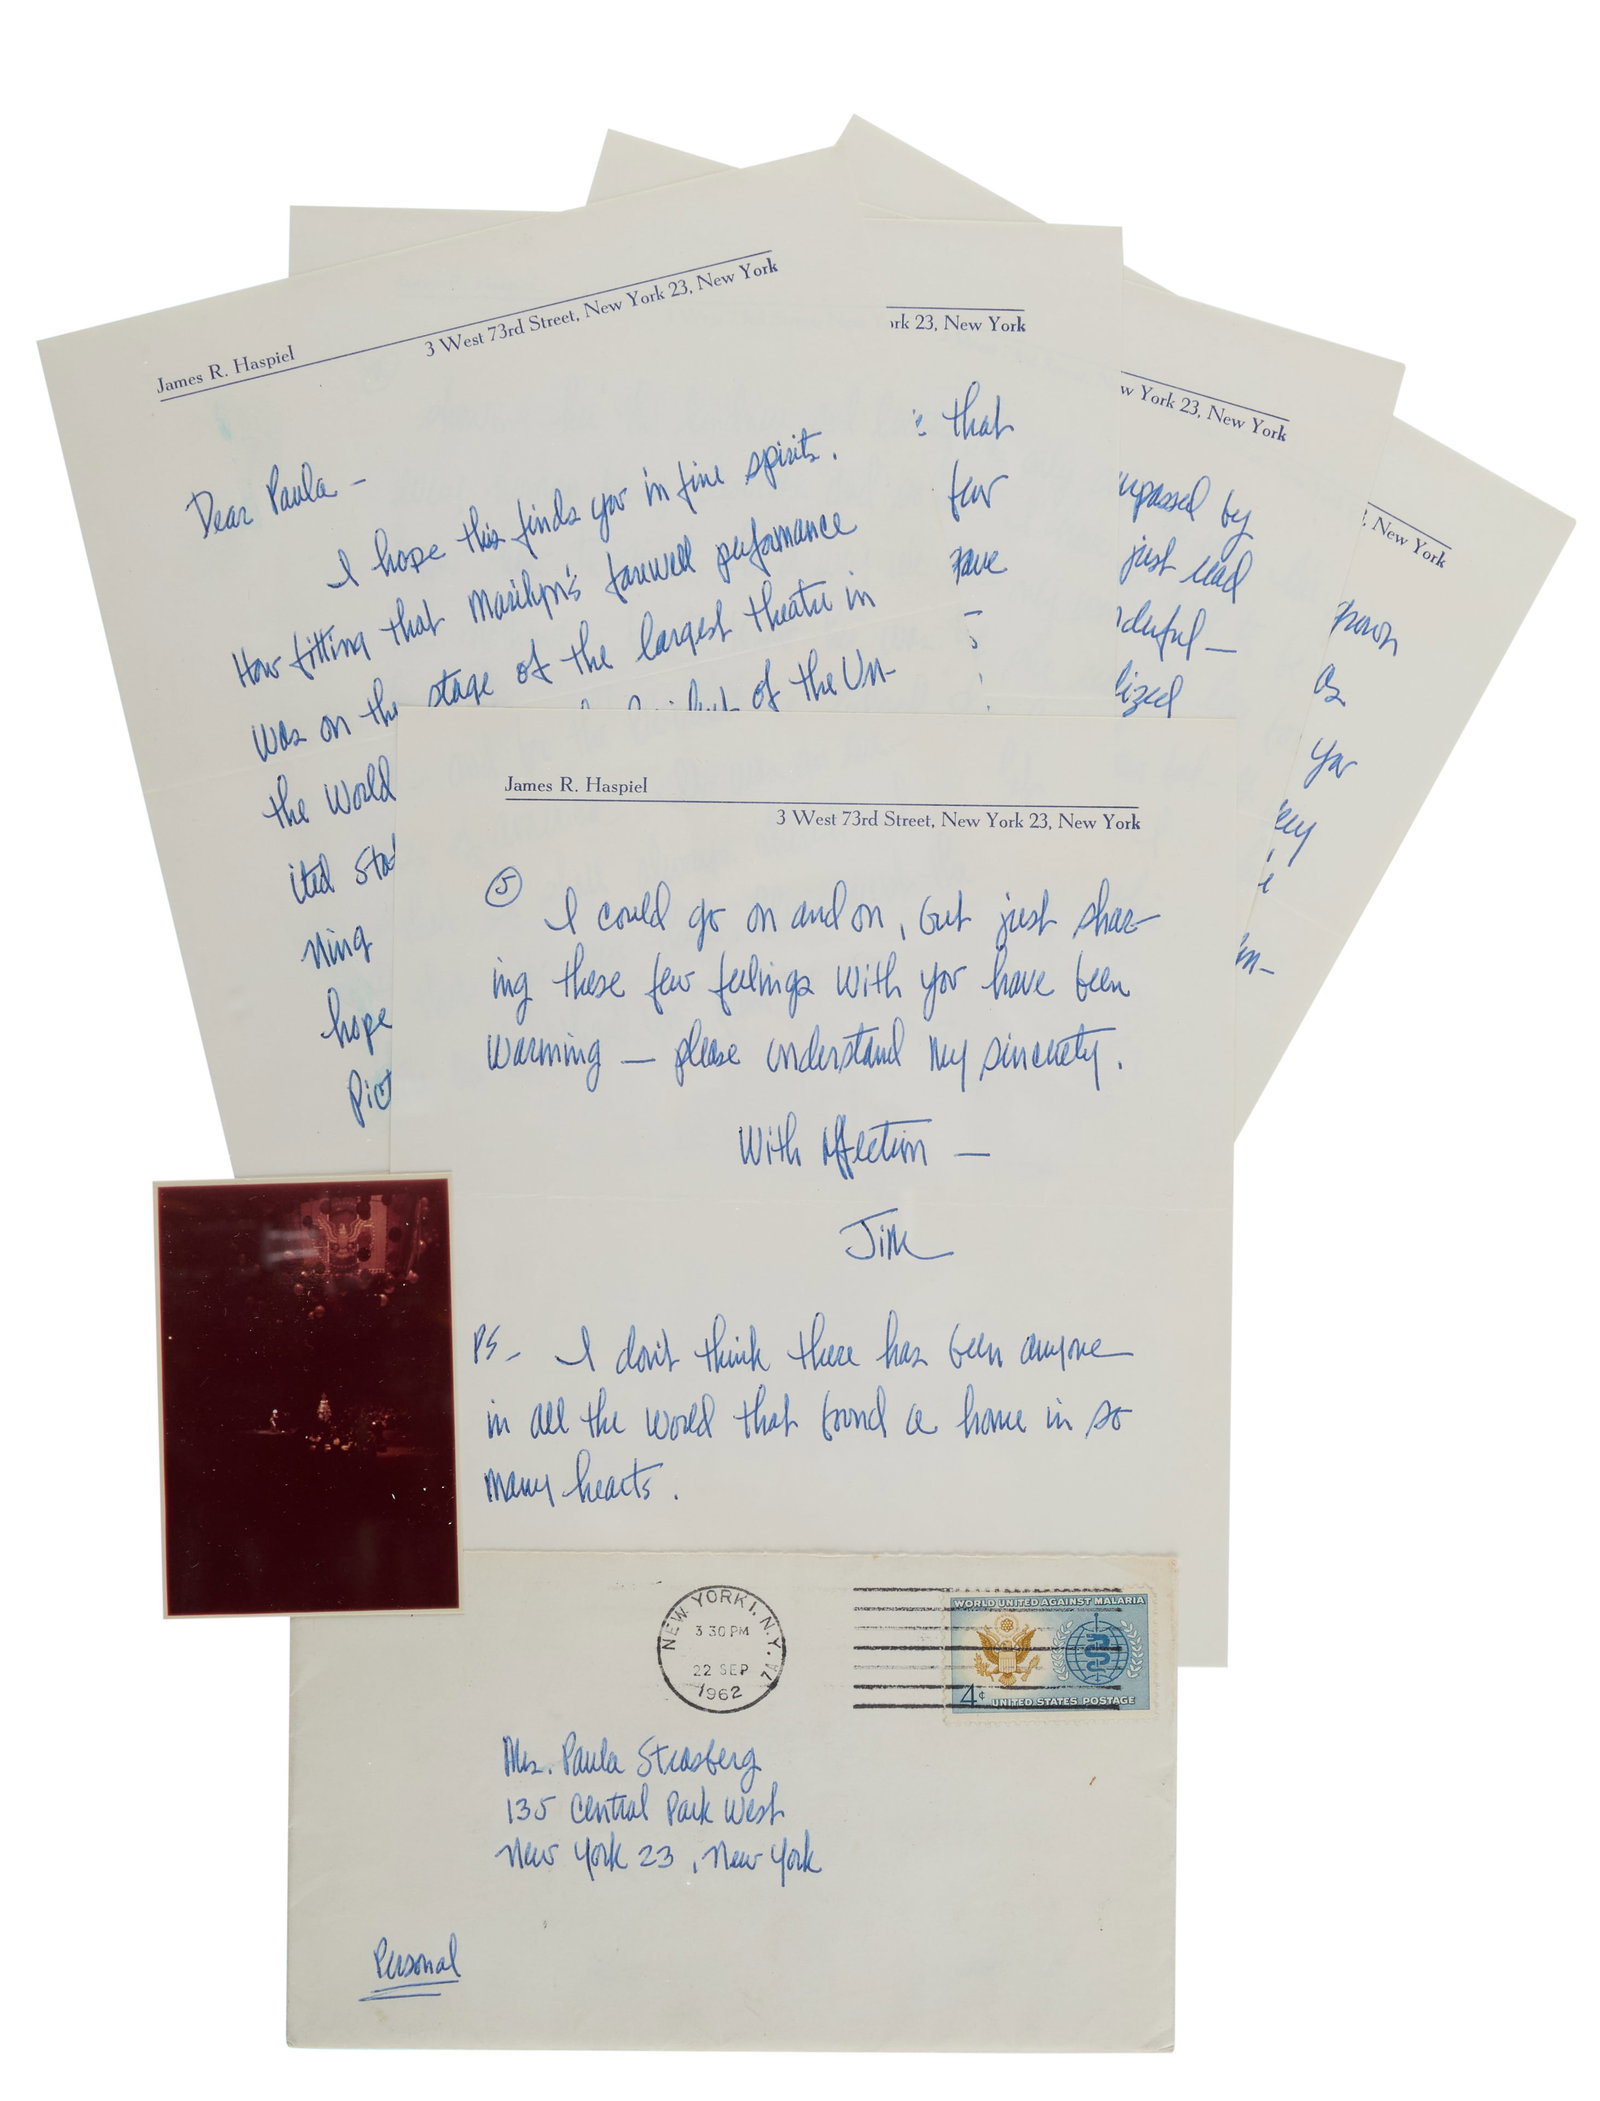 James R. Haspiel
3 West 73rd Street, New York 23, New York
Dear Paula –
I hope this finds you in fine spirits.
How fitting that Marilyn's farewell performance
was on the stage of the largest theatre in
the World
of the Un-
ited Sta
ning
hope
Pict
rk 23, New York
that
few
have
w York 23, New York
mpassed by
just read
derful –
lized
, New York
as
you
James R. Haspiel
3 West 73rd Street, New York 23, New York
5
I could go on and on, but just shar-
ing these few feelings with you have been
warming — please understand my sincerety.
With Affection —
Jim
PS – I don't think there has been anyone
in all the world that found a home in so
many hearts.
NEW YORK 1, N.Y.
3 30 PM
22 SEP
1962
WORLD UNITED AGAINST MALARIA
4¢ UNITED STATES POSTAGE
Mrs. Paula Strasberg
135 Central Park West
New York 23, New York
Personal